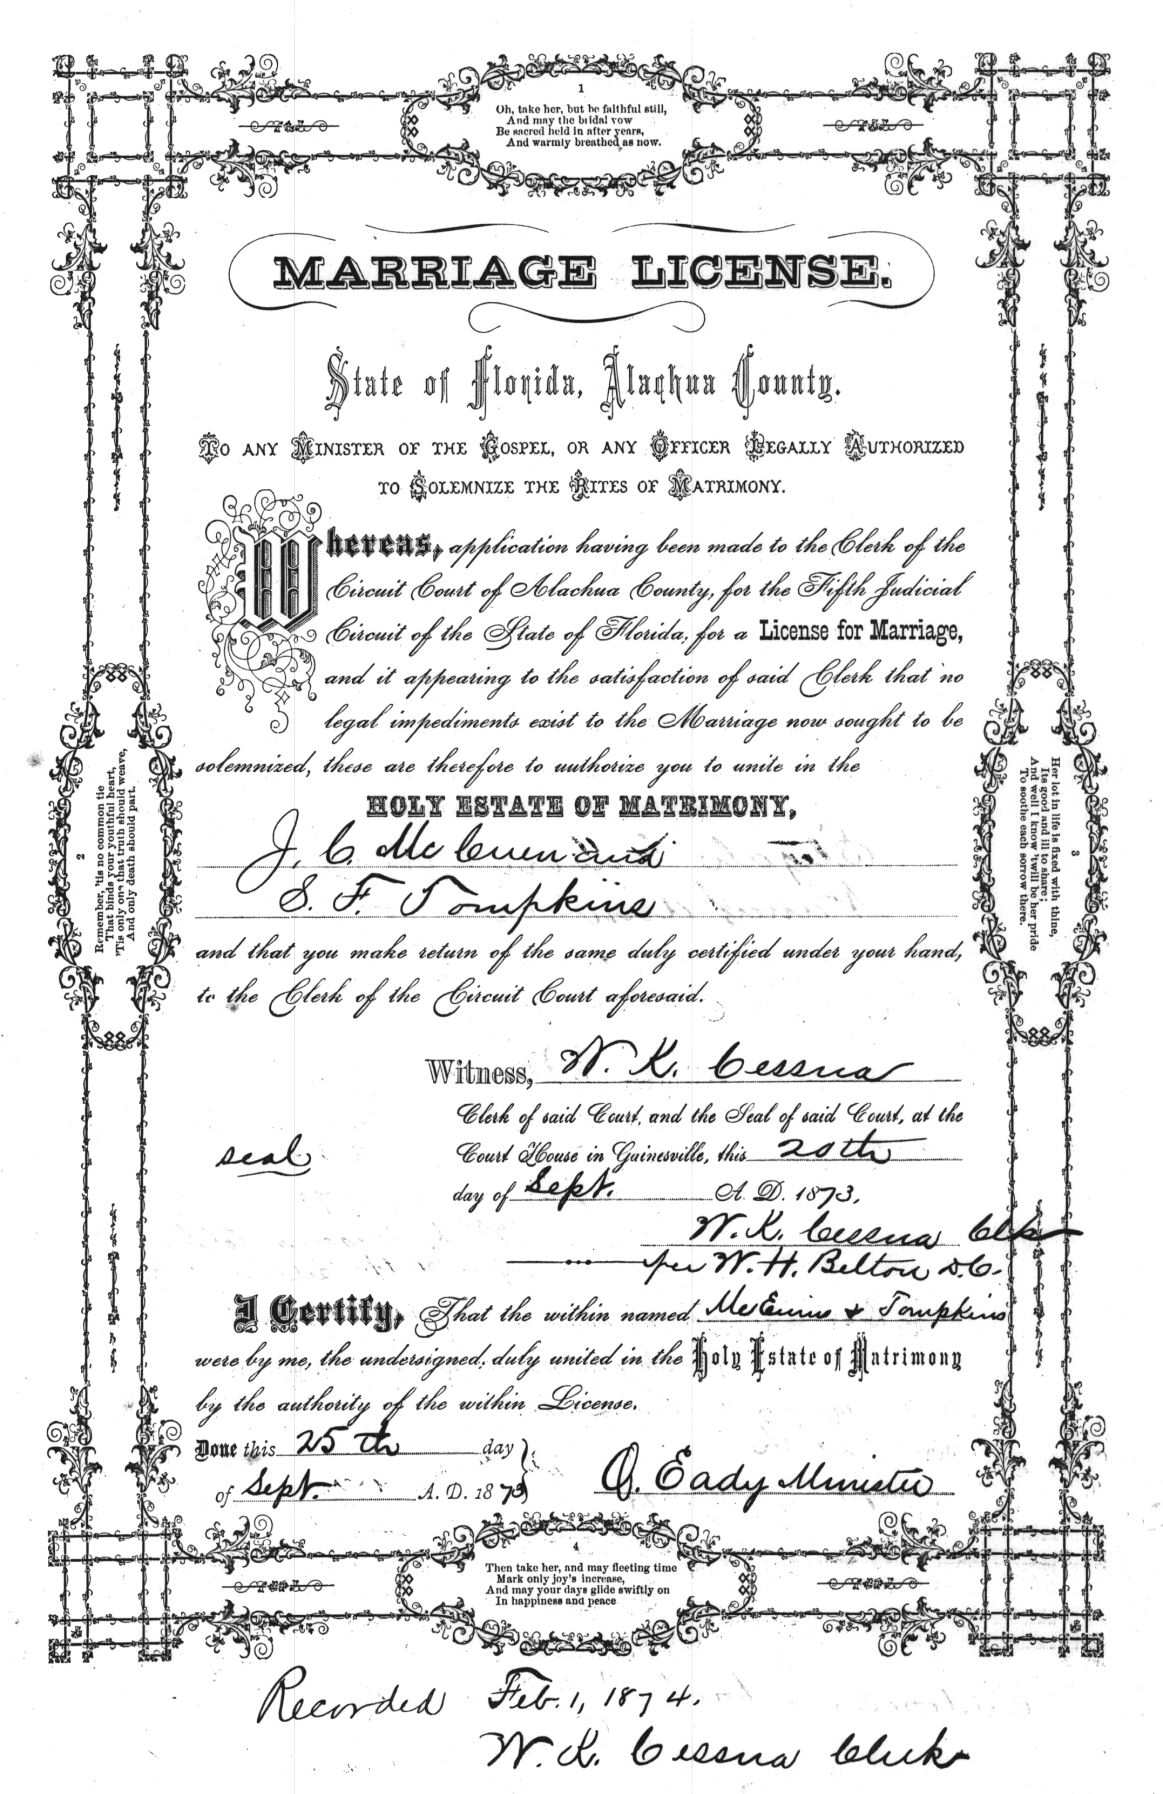 1
Oh, take her, but be faithful still,
And may the bridal vow
Be sacred held in after years,
And warmly breathed as now.
MARRIAGE LICENSE.
State of Florida, Alachua County.
TO ANY MINISTER OF THE GOSPEL, OR ANY OFFICER LEGALLY AUTHORIZED
TO SOLEMNIZE THE RITES OF MATRIMONY.
Whereas, application having been made to the Clerk of the
Circuit Court of Alachua County, for the Fifth Judicial
Circuit of the State of Florida, for a License for Marriage,
and it appearing to the satisfaction of said Clerk that no
legal impediments exist to the Marriage now sought to be
solemnized, these are therefore to authorize you to unite in the
HOLY ESTATE OF MATRIMONY,
J. C. McCuen and
S. F. Tompkins
and that you make return of the same duly certified under your hand,
to the Clerk of the Circuit Court aforesaid.
2
Remember, 'tis no common tie
That binds your youthful heart,
'Tis only one that truth should weave,
And only death should part.
Her lot in life is fixed with thine,
Its good and ill to share;
And well I know 'twill be her pride
To soothe each sorrow there.
3
Witness, W. K. Cessna
Clerk of said Court, and the Seal of said Court, at the
seal Court House in Gainesville, this 20th
day of Sept. A. D. 1873.
W. K. Cessna Clk
per W. H. Belton D.C.
I Certify, That the within named McEuins & Tompkins
were by me, the undersigned, duly united in the Holy Estate of Matrimony
by the authority of the within License.
Done this 25th day
of Sept. A. D. 1873
O. Eady Minister
4
Then take her, and may fleeting time
Mark only joy's increase,
And may your days glide swiftly on
In happiness and peace
Recorded Feb. 1, 1874.
W. K. Cessna Clerk